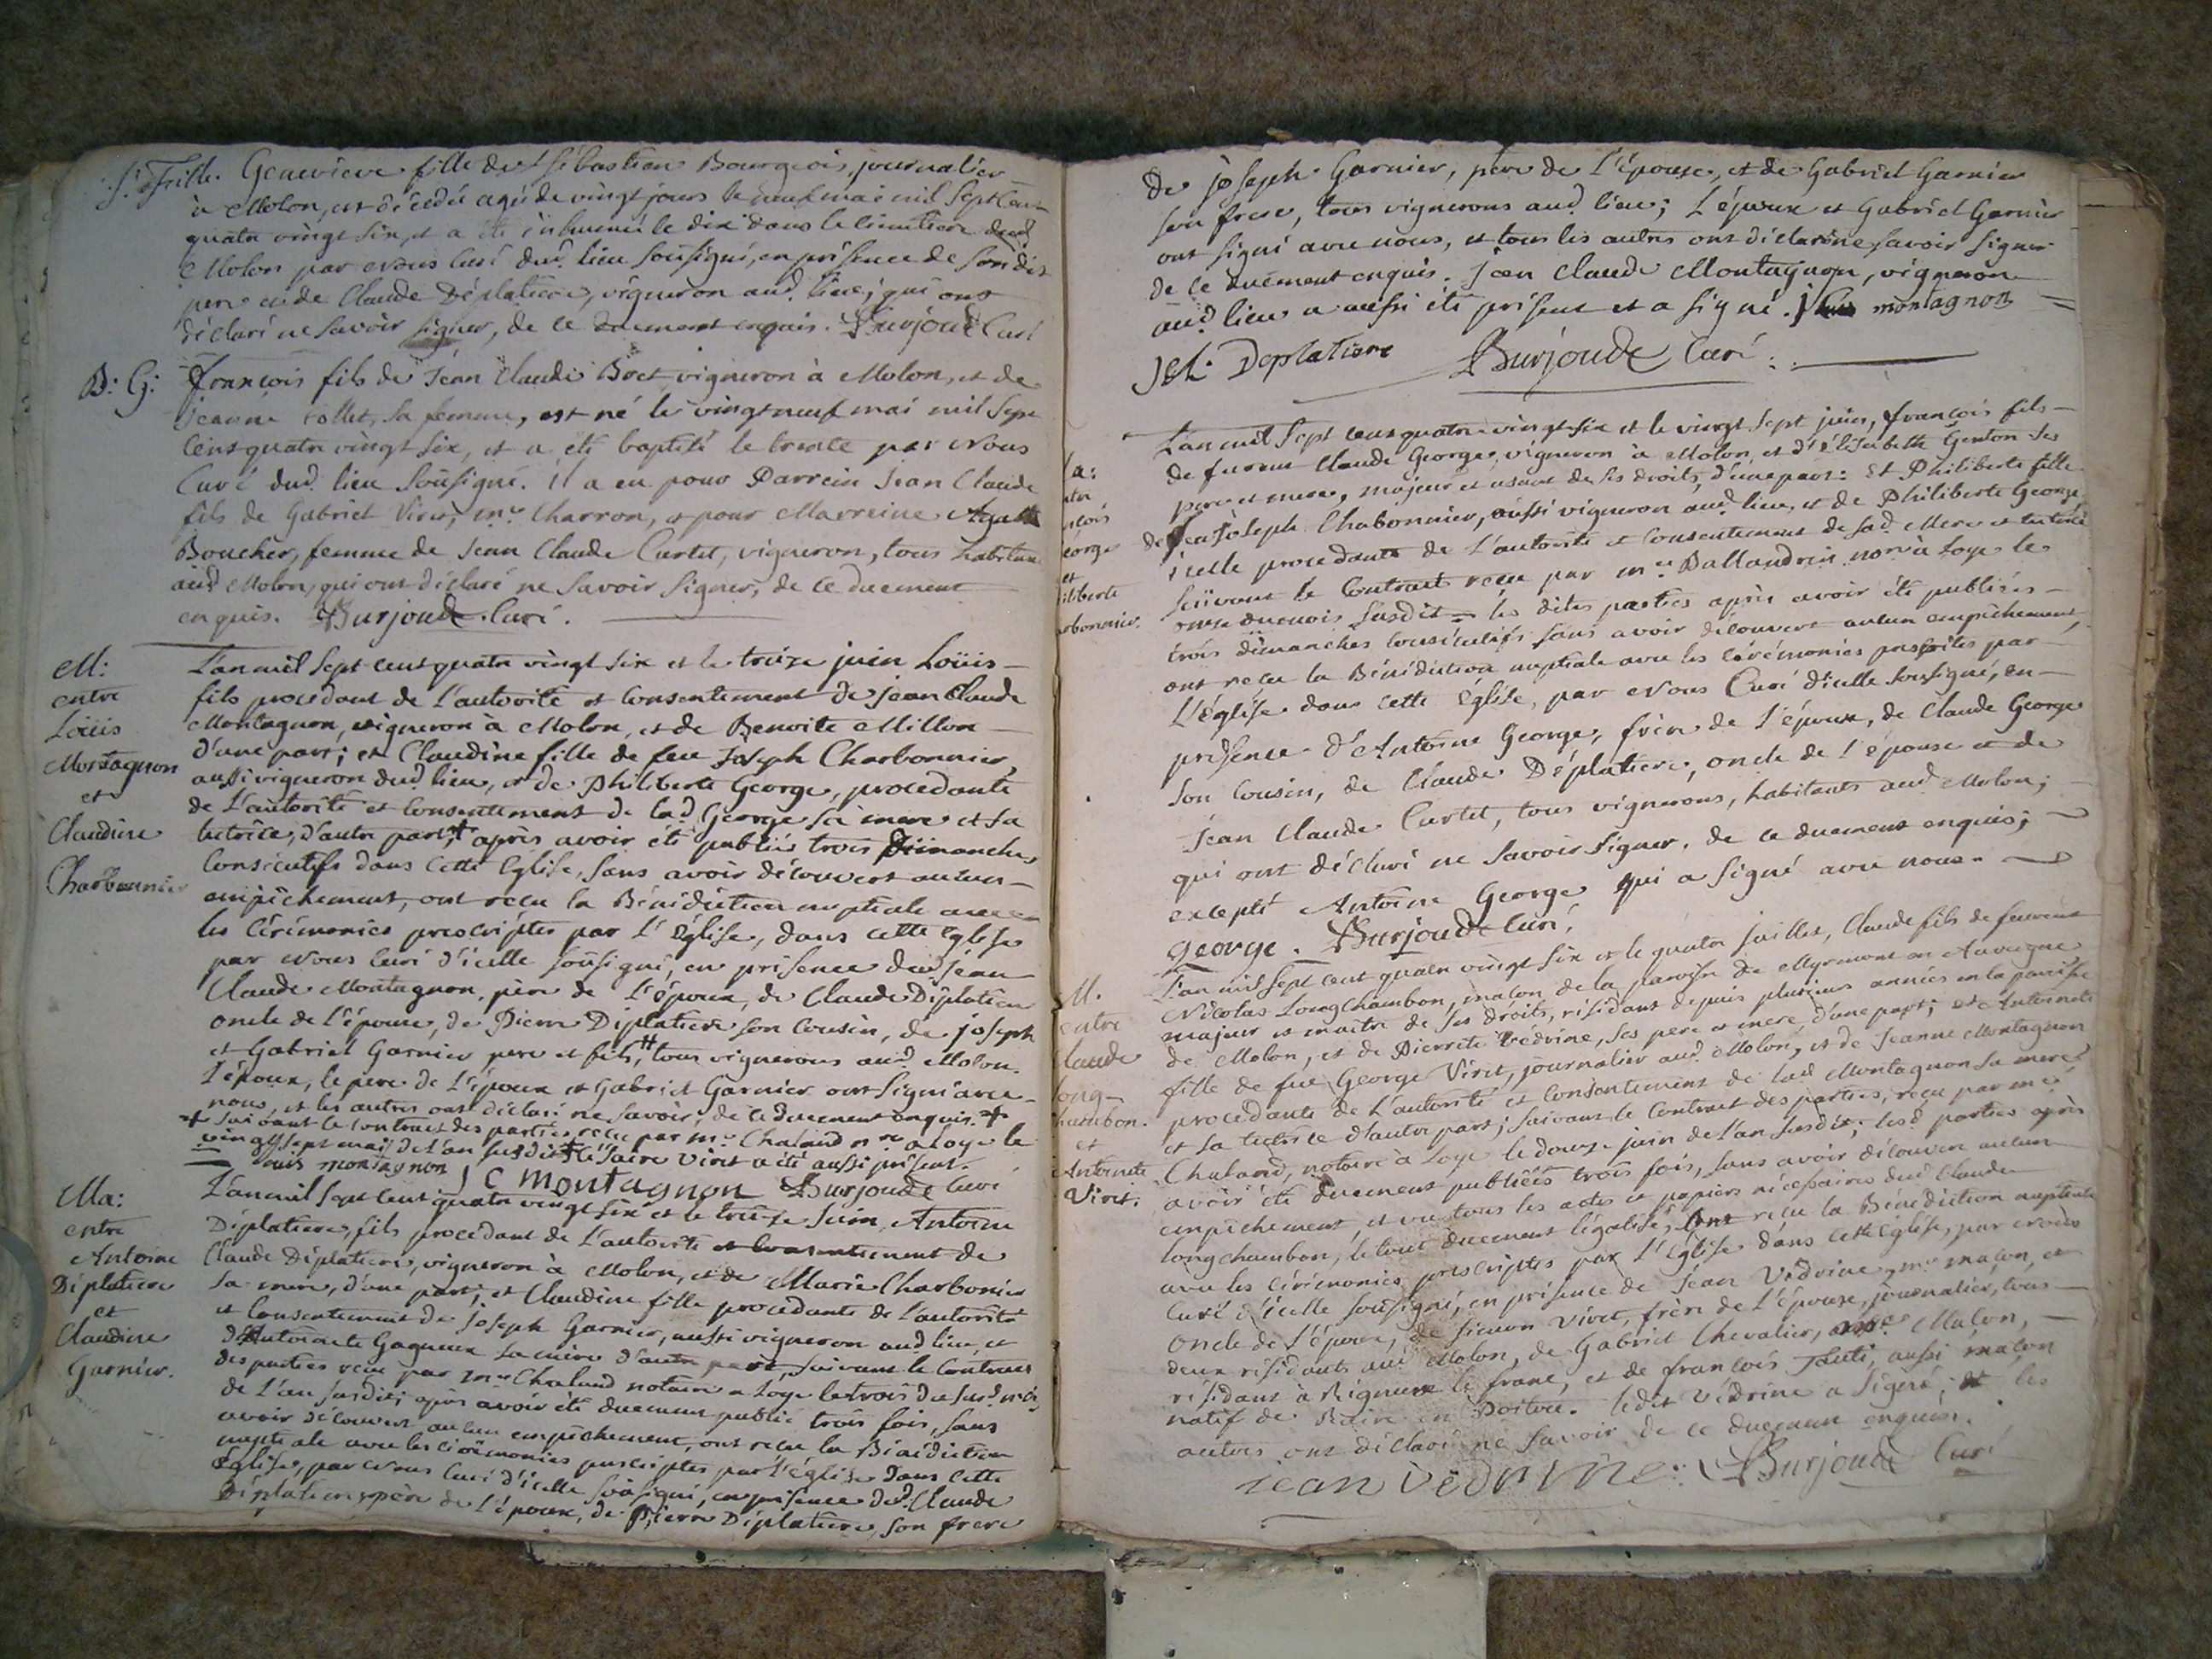 S: Fille. Genevieve fille de Sébastien Bourgeois, journalier
à Molon, est décédée agée de vingt jours le neuf mai mil sept cent
quatre vingt six, et a été inhumée le dix dans le cimetiere dud.
Molon par Nous Curé dud. lieu sousigné, en présence de son dit
pere et de Claude Déplatiere, vigneron aud. lieu; qui ont
déclaré ne savoir signer, de ce duement enquis. Burjoud Curé
B: G: françois fils de Jean Claude Boet vigneron à Molon, et de
Jeanne sa femme, est né le vingt neuf mai mil sept
cent quatre vingt six, et a été baptisé le trente par Nous
Curé dud. lieu sousigné. Il a eu pour Parrein Jean Claude
fils de Gabriel Viret, me. Charron, et pour Marreine Agathe
Boucher, femme de Jean Claude Curtet, vigneron, tous habitans
aud. Molon, qui ont déclaré ne savoir signer, de ce duement
enquis. Burjoud Curé.
M:
entre
Loüis
Montagnon
et
Claudine
Charbonnier
L'an mil sept cent quatre vingt six et le treize juin Loüis
fils procédant de l'autorité et consentement de jean Claude
Montagnon, vigneron à Molon, et de Benoite Millon
d'une part; et Claudine fille de feu Joseph Charbonnier,
aussi vigneron dud. lieu, et de Philiberte George, procédante
de l'autorité et consentement de lad. George sa mere et sa
tutrice, d'autre part, + après avoir été publiés trois Dimanches
consécutifs dans cette Eglise, sans avoir découvert aucun
empêchement, ont reçu la Bénédiction nuptiale avec
les cérémonies prescriptes par L'Eglise, dans cette Eglise
par Nous Curé d'icelle sousigné, en présence dud. Jean
Claude Montagnon, père de l'époux, de Claude Déplatiere
oncle de l'épouse, de Pierre Déplatiere son cousin, de joseph
et Gabriel Garnier pere et fils, ++ tous vignerons aud. Molon.
l'époux, le pere de l'époux et Gabriel Garnier ont signé avec
nous, et les autres ont déclaré ne savoir, de ce duement enquis. +
+ suivant le contrat des parties reçu par me. Chaland nre. a Loye le
vingt sept mai de l'an susdit ++ Cesaire Viret a été aussi présent.
Louis montagnon J C montagnon Burjoud Curé
Ma:
entre
Antoine
Déplatiere
et
Claudine
Garnier.
L'an mil sept cent quatre vingt six et le treize Juin, Antoine
Déplatiere, fils procédant de l'autorité et consentement de
Claude Déplatiere, vigneron à Molon, et de Marie Charbonier
sa mere, d'une part; et Claudine fille procédante de l'autorité
et consentement de joseph Garnier, aussi vigneron aud. lieu, et
d'Antoinete Gagneux sa mère d'autre part, suivant le contract
des parties reçu par me. Chaland notaire a Loye le trois du susd. mois
de l'an susdit; après avoir été duement publié trois fois, sans
avoir découvert aucun empêchement, ont reçu la Bénédiction
nuptiale avec les cérémonies prescriptes par l'église dans cette
Eglise, par Nous Curé d'icelle sousigné, en présence dud. Claude
Déplatiere père de l'époux, de Pierre Déplatiere, son frere
de joseph Garnier, père de l'épouse, et de Gabriel Garnier
son frere, tous vignerons aud. lieu; L'époux et Gabriel Garnier
ont signé avec nous, et tous les autres ont déclaré ne savoir signer
de ce duement enquis. Jean Claude Montagnon, vigneron
aud. lieu a aussi été présent et a signé. J montagnon
Deplatiere Burjoud Curé.
George
et
L'an mil sept cent quatre-vingt-six et le vingt sept juin, françois fils
de furent Claude George, vigneron à Molon, et d'Elisabeth Genton ses
pere et mere, majeur et usant de ses droits, d'une part: Et Philiberte fille
de feu Joseph Chabonnier, aussi vigneron aud. lieu, et de Philiberte George,
icelle procedante de l'autorité et consentement de sad. Mere et tutrice
suivant le contrat reçu par me. Ballandrin nore. à Loye le
onze du mois susdit = les dites parties après avoir été publiées
trois dimanches consécutifs sans avoir découvert aucun empêchement,
ont reçu la Bénédiction nuptiale avec les cérémonies prescrites par
L'église dans cette Eglise, par Nous Curé d'icelle sousigné, en
présence d'Antoine George, frère de l'époux, de Claude George
son cousin, de Claude Déplatiere, oncle de l'épouse et de
Jean Claude Curtet, tous vignerons, habitants aud. Molon;
qui ont déclaré ne savoir signer, de ce duement enquis;
excepté Antoine George qui a signé avec nous.
george. Burjoud Curé.
M.
entre
Claude
Long-
chambon.
et
Antoinete
Viret.
L'an mil sept cent quatre vingt six et le quatre juillet, Claude fils de furent
Nicolas Longchambon, maçon de la paroisse de Myremont en Auvergne
majeur et maitre de ses droits, résidant depuis plusieurs années en la paroisse
de Molon, et de Pierrete Védrine, ses pere et mere, d'une part; et Antoinete
fille de feu George Viret, journalier aud. Molon, et de Jeanne Montagnon
procédante de l'autorité et consentement de lad. Montagnon sa mere
et sa tutrice d'autre part; suivant le contract des parties, reçu par me.
Chaland, notaire à Loye le douze juin de l'an susdit; lesd. parties après
avoir été duement publiées trois fois, sans avoir découvert aucun
empêchement, et vu tous les actes et papiers nécessaires dud. Claude
longchambon, le tout duement légalisé; ont reçu la Bénédiction nuptiale
avec les cérémonies prescriptes par L'Eglise dans cette Eglise, par Nous
Curé d'icelle sousigné, en présence de Jean Védrine, me. maçon, et
oncle de l'époux, de simon Viret, frère de l'épouse, journalier, tous
deux résidants aud. Molon, de Gabriel Chevalier, Malon,
résidant à Rigneux le franc, et de françois aussi maçon
natif de en Poitou. ledit Védrine a signé; et les
autres ont déclaré ne savoir de ce duement enquis.
jean vedrine: Burjoud Curé